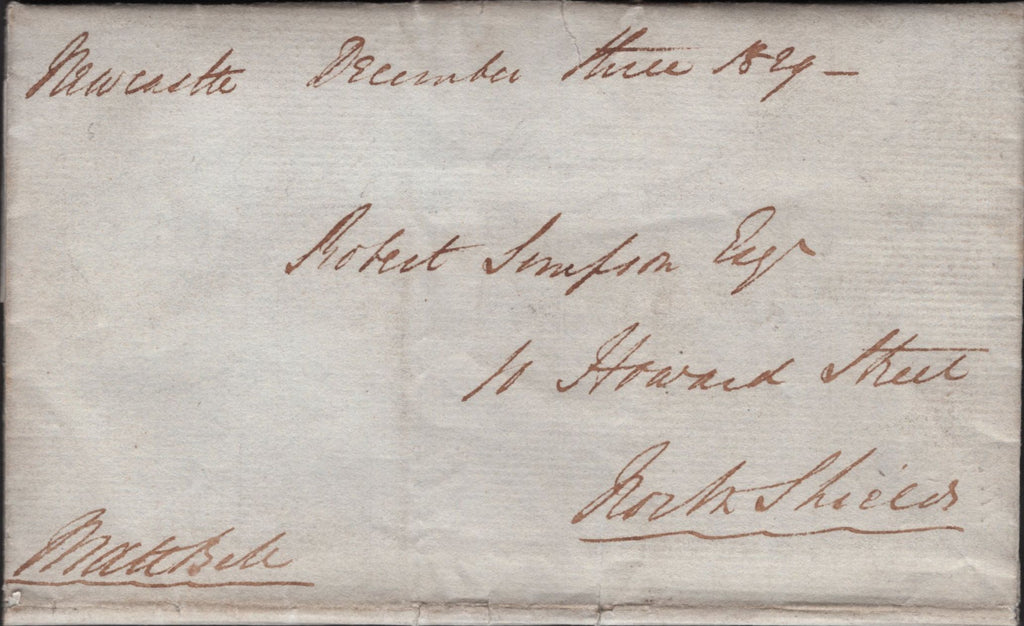 Newcastle December three 1829 —
Robert Simpson Esqr
10 Howard Street
North Shields
Matt Bell